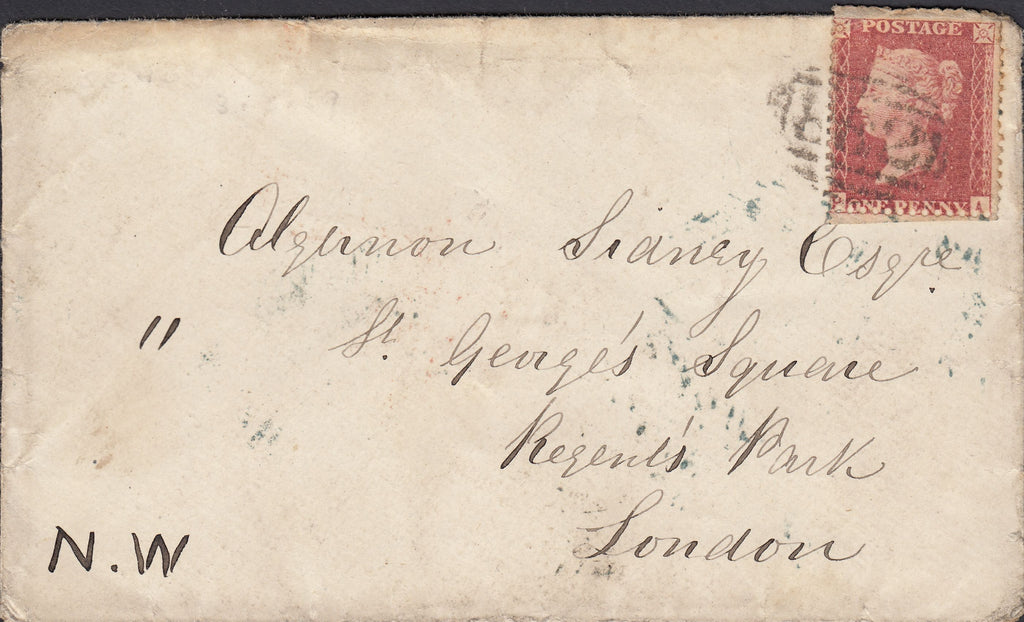 POSTAGE
ONE PENNY A
Algernon Sidney Esqre
" St. George's Square
Regent's Park
London
N.W